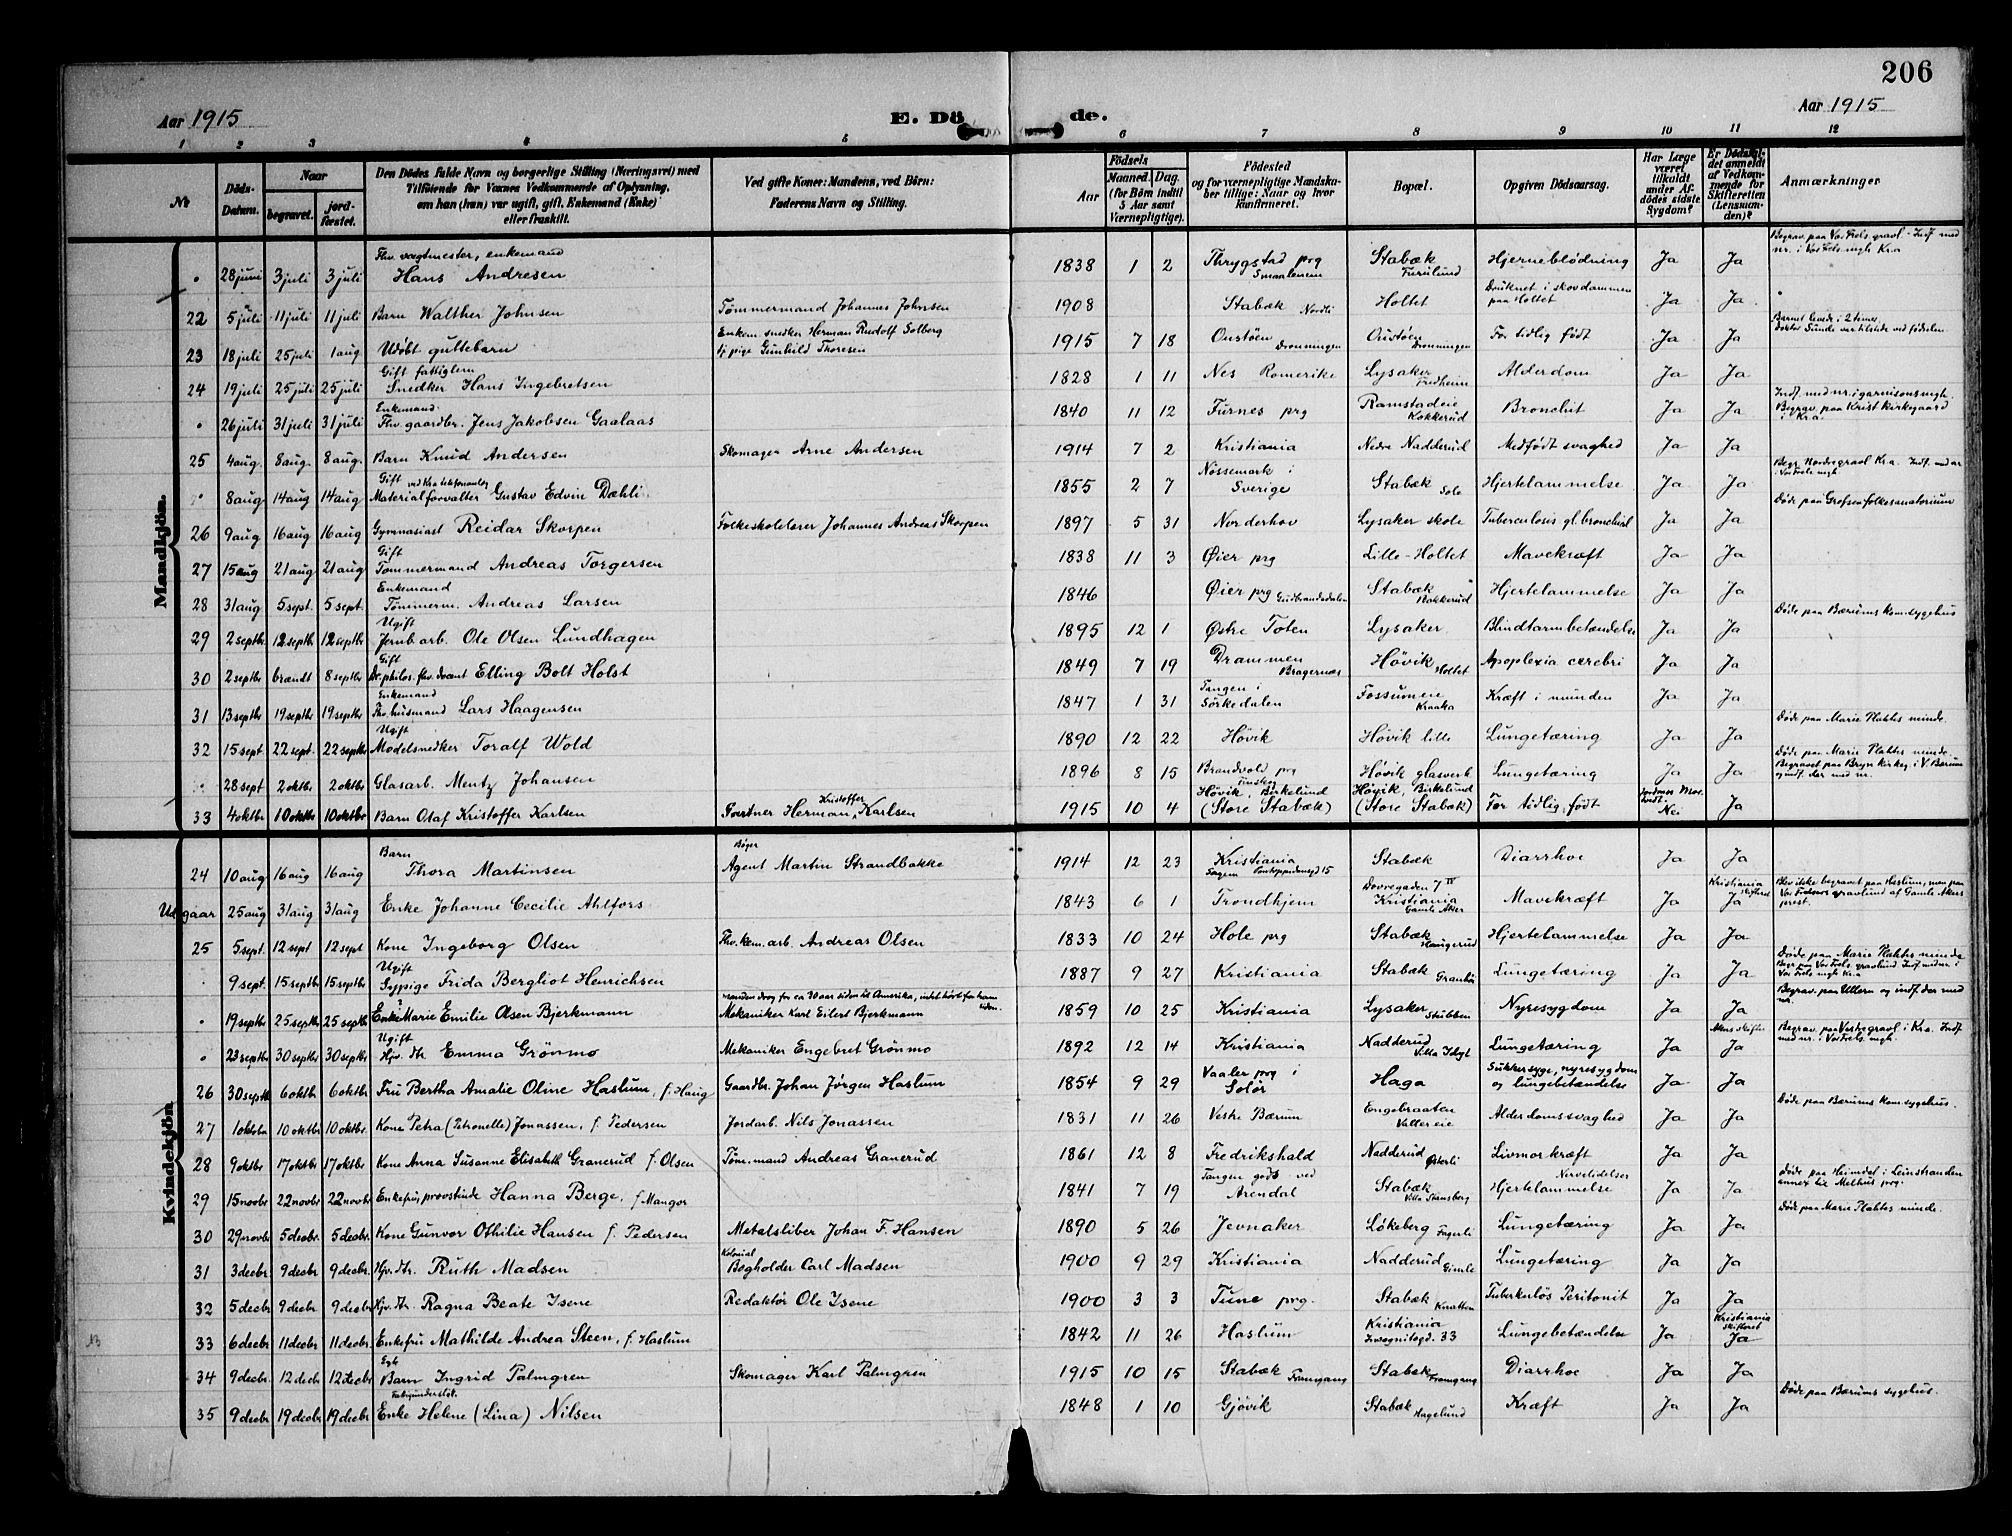 206
Aar 1915
E. Dö
de.
Aar 1915
1 2 3 4 5 6 7 8 9 10 11 12
№
Døds-Datum.
Naar
begravet.
jord-fæstet.
Den Dødes fulde Navn og borgerlige Stilling (Næringsvei) med
Tilføiende for Voxnes Vedkommende af Oplysning,
om han (hun) var ugift, gift, Enkemand (Enke)
eller fraskilt.
Ved gifte Koner: Mandens, ved Børn:
Faderens Navn og Stilling.
Aar
Fødsels
Maaned. Dag.
(for Børn indtil
5 Aar samt
Værnepligtige).
Fødested
og for værnepligtige Mandska-
ber tillige: Naar og hvor
konfirmeret.
Bopæl.
Opgiven Dødsaarsag.
Har Læge
været
tilkaldt
under Af-
dødes sidste
Sygdom?
Er Dødsfal-
det anmeldt
af Vedkom-
mende for
Skifteretten
(Lensman-
den)?
Anmærkninger
Mandkjön.
28 juni 3 juli 3 juli Fhv. vægtmester, enkemand Hans Andresen 1838 1 2 Thrygstad prg Smaalenene Stabæk Furulund Hjerneblødning Ja Ja Begrav. paa Vor Frels. gravl. Indf. med nr. i Vor Frels. mgh. Kr.a
22 5 juli 11 juli 11 juli Barn Walther Johnsen Tømmermand Johannes Johnsen 1908 Stabæk Nordli Holtet Druknet i skovdammen paa Holtet Ja Ja
23 18 juli 25 juli 1 aug Udøbt guttebarn Enkem. snedker Herman Rudolf Solberg tj. pige Gunhild Thoresen 1915 7 18 Oustøen Dronningen Oustøen Dronningen For tidlig født Ja Ja Barnet levede i 2 timer. Doktor Sunde var tilstede ved fødselen
24 19 juli 25 juli 25 juli Gift fattiglem Snedker Hans Ingebretsen 1828 1 11 Nes Romerike Lysaker Fredheim Alderdom Ja Ja
26 juli 31 juli 31 juli Enkemand Fhv. gaardbr. Jens Jakobsen Gaalaas 1840 11 12 Furnes prg Ramstadeie Kokkerud Bronchit Ja Ja Indf. med nr. i garnisons mgh. Begrav. paa Krist Kirkegaard i Kr.a.
25 4 aug. 8 aug. 8 aug. Barn Knud Andersen Skomager Arne Andersen 1914 7 2 Kristiania Nedre Nadderud Medfødt svaghed Ja Ja
8 aug 14 aug 14 aug Gift ved Kra telefonanlæg Materialforvalter Gustav Edvin Dæhli 1855 2 7 Nössemark i Sverige Stabæk Solo Hjertelammelse Ja Ja Begr. Nordregravl Kr.a. Indf. med nr i Vor Frels mgh.
26 9 aug 16 aug 16 aug Gymnasiast Reidar Skorpen Folkeskolelærer Johannes Andreas Skorpen 1897 5 31 Norderhov Lysaker skole Tuberculosis gl. bronchial Ja Ja Døde paa Grefsen folkesanatorium
27 15 aug 21 aug 21 aug Gift Tømmermand Andreas Torgersen 1838 11 3 Øier prg Lille-Holtet Mavekræft Ja Ja
28 31 aug 5 sept. 5 sept. Enkemand Tømmerm. Andreas Larsen 1846 Øier prg Gudbrandsdalen Stabæk Bakkerud Hjertelammelse Ja Ja
29 2 septb 12 septb 12 septb Ugift Jernb arb. Ole Olsen Lundhagen 1895 12 1 Østre Toten Lysaker Blindtarmbetændelse Ja Ja Døde paa Bærums kom. sygehus
30 2 septbr brændt 8 septbr Gift Dr. philos. fhv. dvant Elling Bolt Holst 1849 7 19 Drammen Bragernæs Høvik Holtet Apoplexia cerebri Ja Ja
31 13 septbr 19 septbr 19 septbr Enkemand Fhv. husmand Lars Haagensen 1847 1 31 Tangen i Sörkedalen Fossumeie Kraaka Kræft i munden Ja Ja
32 15 sept. 22 sept. 22 septbr Ugift Modelsnedker Toralf Wold 1890 12 22 Høvik Høvik lille Lungetæring Ja Ja Døde paa Marie Plahtes minde.
28 sept 2 oktbr 2 oktbr Glasarb. Mentz Johansen 1896 8 15 Brandvold prg Finskog Høvik glasverk Lungetæring Ja Ja Døde paa Marie Plahtes minde. Begravet paa Bryn kirkeg. i V. Bærum og indf. der med nr.
33 4 oktbr 10 oktbr 10 oktbr Barn Olaf Kristoffer Karlsen Gartner Herman Kristoffer Karlsen 1915 10 4 Høvik, Birkelund (Store Stabæk) Høvik, Birkelund (Store Stabæk) For tidlig født Nei Ja
Kvindekjön
24 10 aug 16 aug 16 aug Barn Thora Martinsen Agent Martin Strandbakke 1914 12 23 Kristiania Stabæk Diarrhoe Ja Ja
Udgaar 25 aug 31 aug 31 aug Enke Johanne Cecilie Ahlfors 1843 6 1 Trondhjem Dovregaden 7 IV Kristiania Gamle Aker Mavekræft Ja Kristiania skifteret Ja Blev ikke begravet paa Haslum, men paa Vor Frelsers gravlund af Gamle Akers prest.
25 5 sept. 12 sept 12 sept Kone Ingeborg Olsen Fhv. kem. arb. Andreas Olsen 1833 10 24 Hole prg Stabæk Haugerud Hjertelammelse Ja Ja
9 sept. 15 septbr 15 septbr Ugift Sypige Frida Bergliot Henrichsen 1887 9 27 Kristiania Stabæk Granbo Lungetæring Ja Ja Døde paa Marie Plahtes minde Begr. paa Vor Frels. gravlund. Indf. med nr. i Vor Frels mgh Kr.a
19 septbr 25 septbr 25 septbr Enke Marie Emilie Olsen Bjerkmann manden drog for ca 30 aar siden til Amerika, intet hørt fra ham siden. Mekaniker Karl Eilert Bjerkmann 1859 10 25 Kristiania Lysaker Stubben Nyresygdom Ja Ja Begrav. paa Ullern og indf. der med nr.
23 septbr 30 septbr 30 septbr Ugift Hjv. dtr. Emma Grønmo Mekaniker Engebret Grønmo 1892 12 14 Kristiania Nadderud Lungetæring Ja Akers skifte Ja Begrav. paa Vestregravl. i Kr.a. Indf med nr. i Vor Frels. mgh.
26 30 septb 6 oktbr 6 oktbr Fru Bertha Amalie Oline Haslum, f. Haug Gaardbr. Johan Jørgen Haslum 1854 9 29 Vaaler prg i Solør Haga Sukkersyge, nyresygdom og lungebetændelse Ja Ja
27 1 oktobr 10 oktbr 10 oktbr Kone Petra (Petronelle) Jonassen, f. Pedersen Jordarb. Nils Jonassen 1831 11 26 Vestre Bærum Engebraaten Vallereie Alderdomssvaghed Ja Ja Døde paa Bærums kom. sygehus.
28 9 oktbr 17 oktbr 17 oktbr Kone Anna Susanne Elisabeth Granerud f. Olsen Tøm. mand Andreas Granerud 1861 12 8 Fredrikshald Nadderud Østerli Livmorkræft Ja Ja
29 15 novbr 22 novbr 22 novbr Enkefru, provstinde Hanna Berge, f. Mangor 1841 7 19 Tangen gods ved Arendal Stabæk Villa Stensberg Nervelidelser Hjertelammelse Ja Ja Døde paa Heimdal i Leinstranden annex til Melhus prg.
30 29 novbr 5 decbr. 5 decbr. Kone Gunvor Othilie Hansen f. Pedersen Metalsliber Johan F. Hansen 1890 5 26 Jevnaker Løkeberg Fagerli Lungetæring Ja Ja Døde paa Marie Plahtes minde.
31 3 decbr. 9 decbr. 9 decbr. Hjv. dtr. Ruth Madsen Kolonial Bogholder Carl Madsen 1900 9 29 Kristiania Nadderud Gimle Lungetæring Ja Ja
32 5 decbr 9 decbr 9 decbr Hjv. dtr. Ragna Beate Isene Redaktør Ole Isene 1900 3 3 Tune prg. Stabæk Knatten Tuberkuløs Peritonit Ja Ja
33 6 decbr 11 decbr 11 decbr Enkefru Mathilde Andrea Steen, f. Haslum 1842 11 26 Haslum Kristiania Incognitogd. 33 Lungebetændelse Ja Kristiania skifteret Ja
34 9 decbr. 12 decbr 12 decbr Egte Barn Ingrid Palmgren Skomager Karl Palmgren 1915 10 15 Stabæk Framgang Stabæk Framgang Diarrhoe Ja Ja
35 9 decbr 19 decbr 19 decbr Fattigunderstøt. Enke Helene (Lina) Nilsen 1848 1 10 Gjøvik Stabæk Hagelund Kræft Ja Ja Døde paa Bærums sygehus.